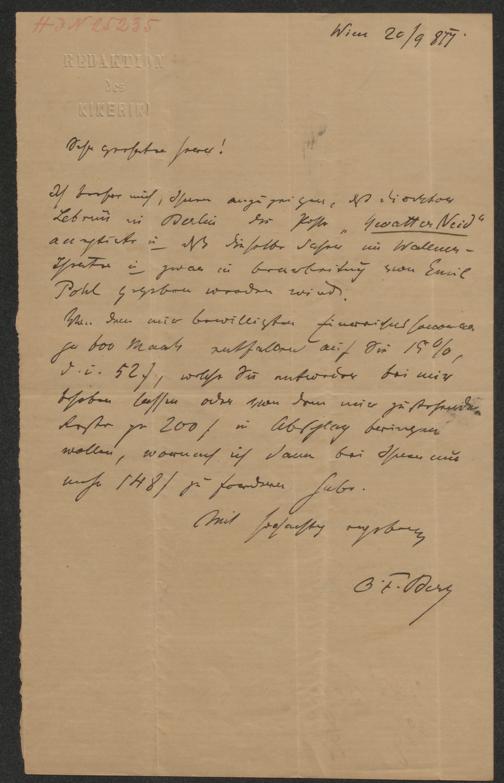 H.I.N. 25235
Wien 20/9 877.
REDAKTION
des
KIKERIKI
Sehr geehrter Herr!
Ich beehre mich, Ihnen anzuzeigen, daß Director
Lebrun in Berlin die Posse „Gevatter Neid“
acceptirte u. daß dieselbe Ihnen im Wallner-
Theater u. zwar in Bearbeitung von Emil
Pohl gegeben werden wird.
Von dem mir bewilligten
zu 600 Mark entfallen auf Sie 15%,
d. i. 52 f, welche Sie entweder bei mir
beheben lassen oder von dem mir zustehenden
Reste zu 200 f in Abschlag bringen
wollen, wornach ich dann bei Ihnen nur
mehr 148 f zu fordern habe.
Mit Hochachtung ergebenst
O. F. Berg